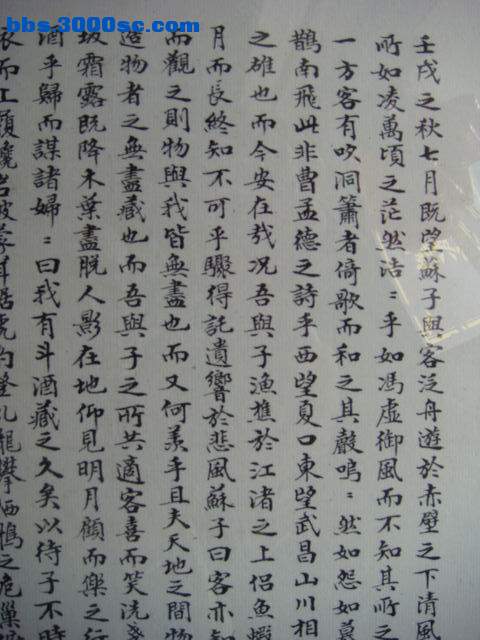 bbs.3000sc.com
壬戌之秋七月既望蘇子與客泛舟遊於赤壁之下清風
所如凌萬頃之茫然浩：乎如馮虛御風而不知其所
一方客有吹洞簫者倚歌而和之其聲嗚：然如怨如慕
鵲南飛此非曹孟德之詩乎西望夏口東望武昌山川相
之雄也而今安在哉况吾與子漁樵於江渚之上侶魚蝦
月而長終知不可乎驟得託遺響於悲風蘇子曰客亦知
而觀之則物與我皆無盡也而又何羨乎且夫天地之間物
造物者之無盡藏也而吾與子之所共適客喜而笑洗
坂霜露既降木葉盡脫人影在地仰見明月顧而樂之行
酒乎歸而謀諸婦：曰我有斗酒藏之久矣以待子不時
衣而上履巉岩披蒙茸踞虎豹登虬龍攀栖鶻之危巢